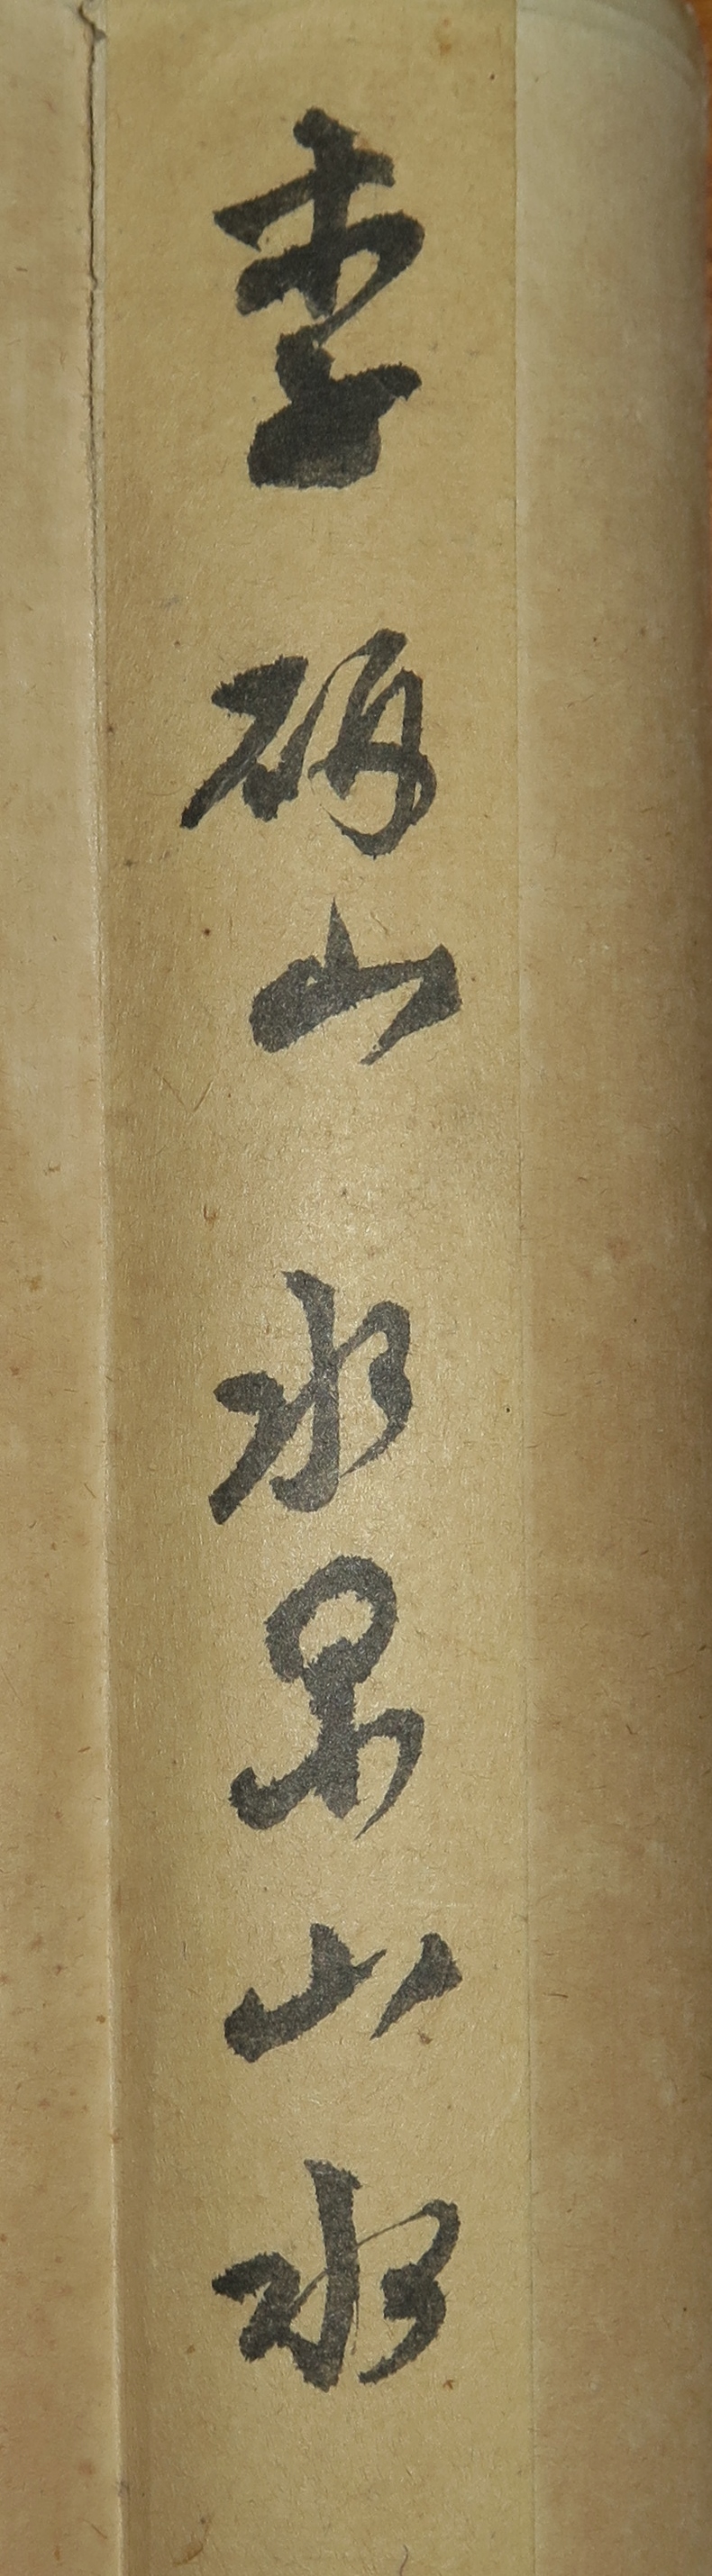 李研山水墨山水